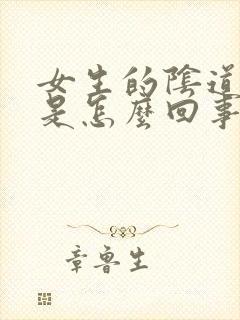 女生的陰道
是怎麼回事
章魯生